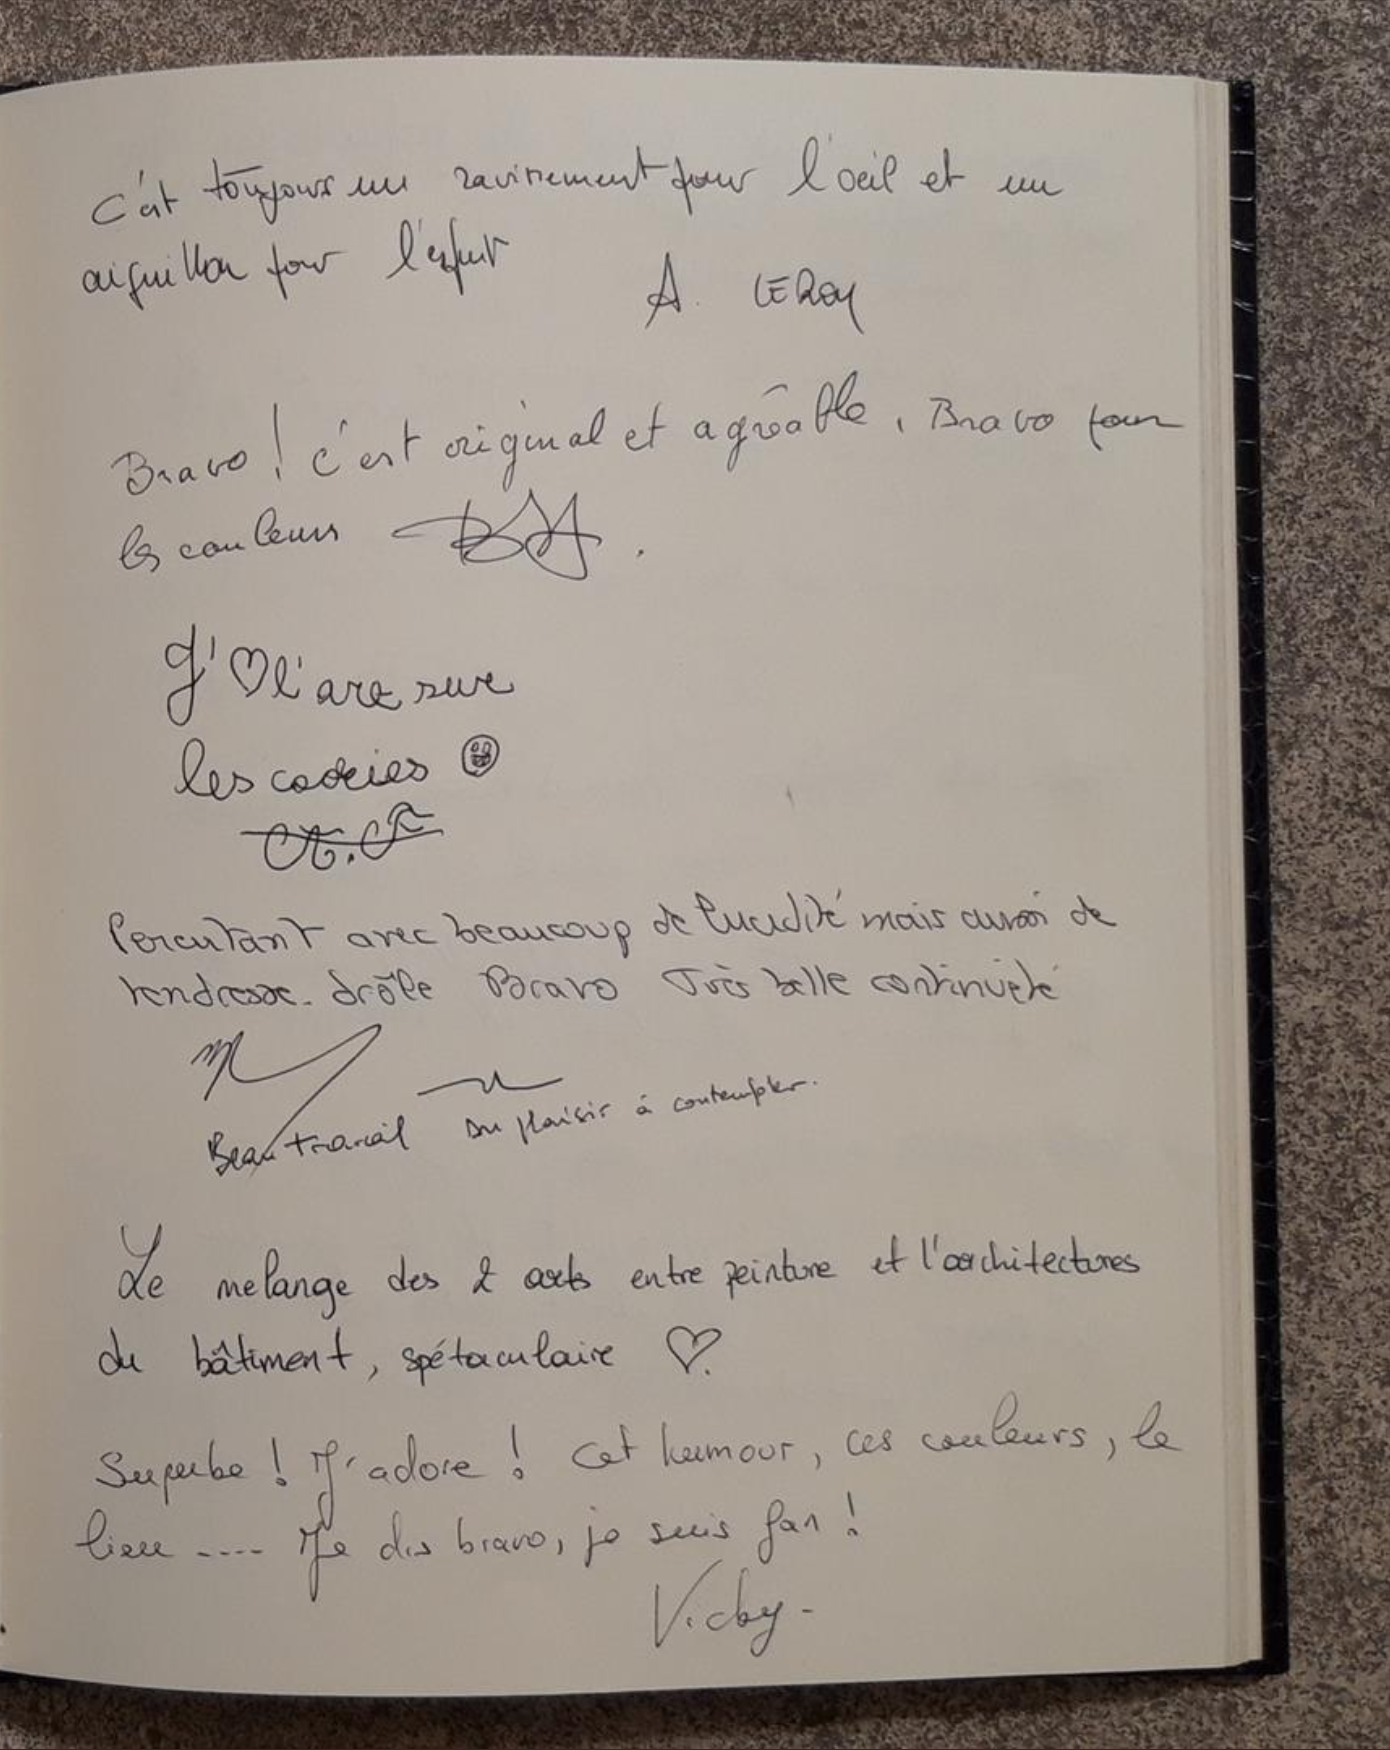 C'est toujours un ravissement pour l'oeil et un
aiguillon pour l'esprit
A. LEROY
Bravo ! c'est original et agréable, Bravo pour
les couleurs
J'♡ l'are sur
les cookies
Percutant avec beaucoup de lucidité mais aussi de
tendresse. drôle Bravo Très belle continuité
Beau travail Du plaisir à contempler.
Le melange des 2 arts entre peinture et l'architectures
du bâtiment, spétaculaire ♡.
Superbe ! J'adore ! Cet humour, ces couleurs, le
lieu .... Je dis bravo, je suis fan !
Vicky -